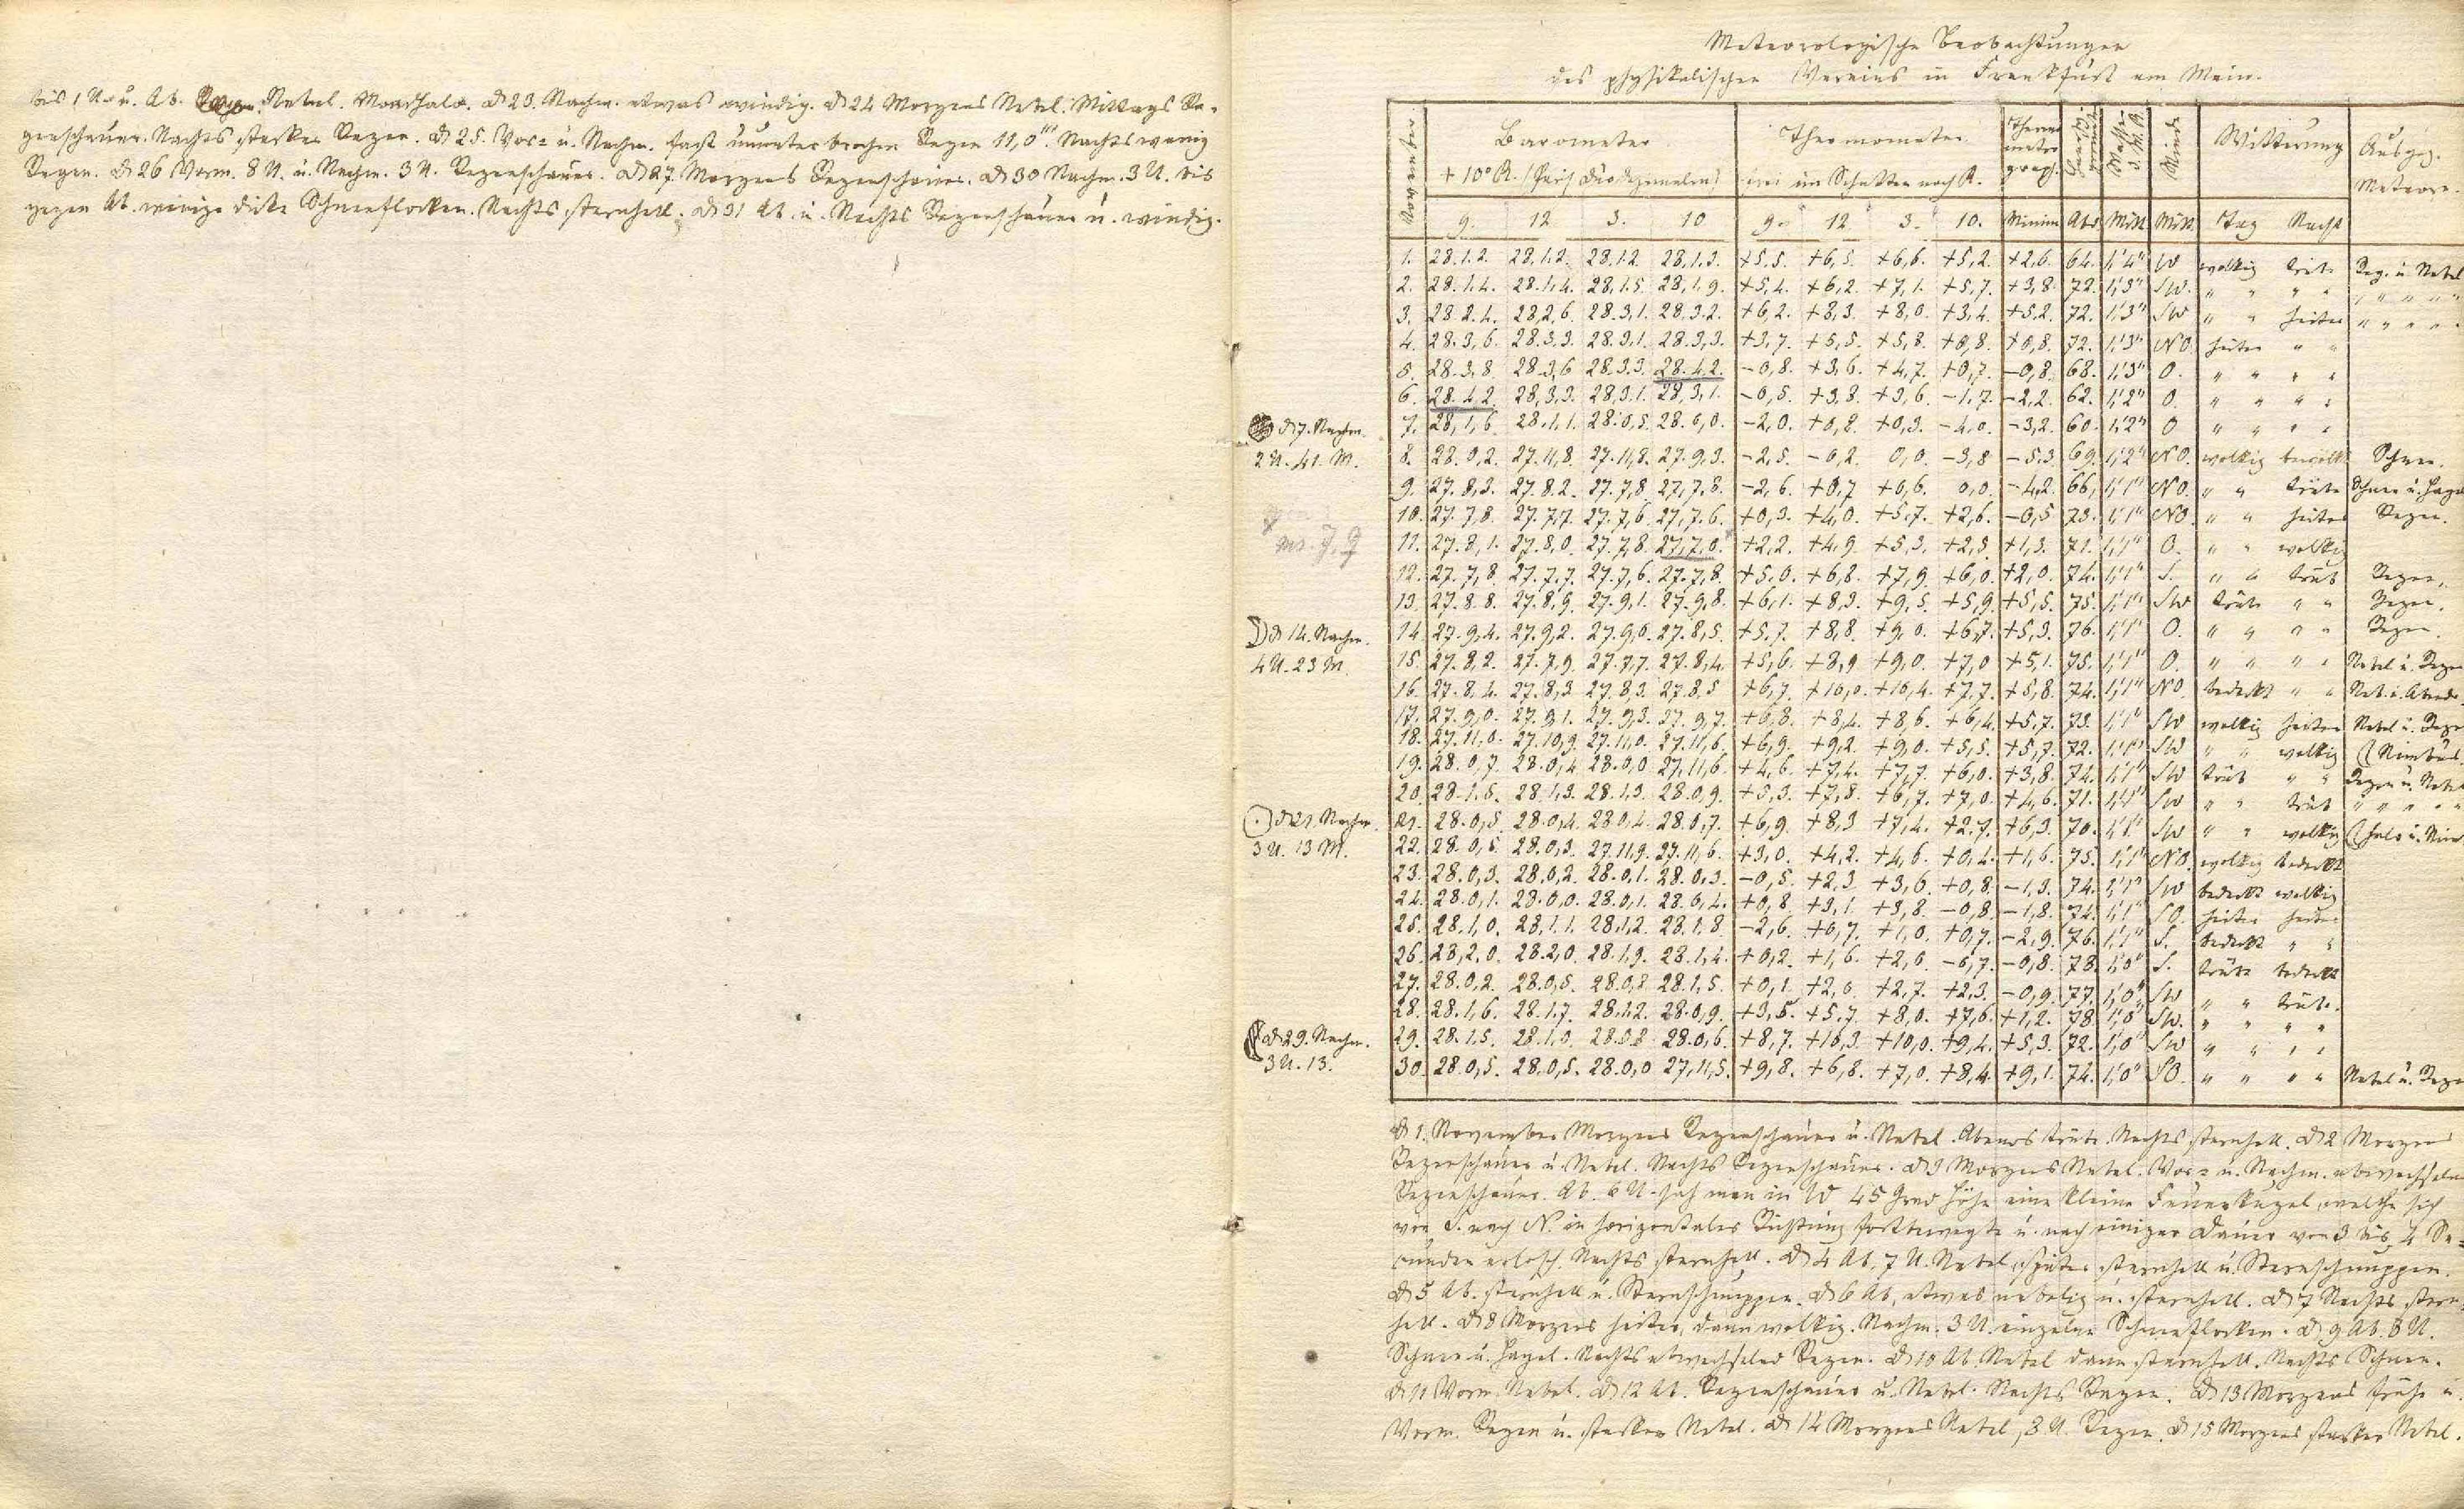 bis 1 U. u. Ab. Nebel. Mondhalo. d 23. Nachm. etwas windig. d 24 Morgens Nebel. Mittags Re-
genschauer. Nachts starker Regen. d 25. Vor= u. Nachm. fast ununterbrochen Regen 11,0‴. Nachts wenig
Regen. d 26 Vorm. 8 U. u. Nachm. 3 U. Regenschauer. d 27. Morgens Regenschauer. d 30 Nachm. 3 U. bis
gegen Ab. wenige dicke Schneeflocken. Nachts sternhell. d 31 Ab. u. Nachts Regenschauer u. windig.
Meteorologische Beobachtungen
des physikalischen Vereins in Frankfurt am Main.
November Barometer Thermometer Thermometrograph. Winde Witterung Ausgez. Meteore.
+ 10° R. (Paris Duodezimalen) frei im Schatten nach R.
9. 12 3. 10 9. 12 3. 10. Minim Abd. Mitt. Mitt. Tag Nacht
1. 28.1.2. 28.1.2. 28.1.2 28.1.3. +5,5. +6,5. +6,6. +5,2. +2,6. 64. 1,'4" W wolkig trüb Reg. u. Nebel
2. 28.1.4. 28.1.4. 28.1.5 28.1.9. +5,4. +6,2. +7,1. +5,7. +3,8. 72. 1,'3" SW. " " " " " " " "
3. 28.2.4. 28.2,6. 28.3,1. 28.3.2. +6,2. +8,3. +8,0. +3,4. +5,2. 72. 1,'3" SW " " heiter " " " "
4. 28.3,6. 28.3.3. 28.3,1. 28.3,3. +3,7. +5,5. +5,8. +0,8. +0,8. 72. 1,'3" NO. heiter " "
5. 28.3,8 28.3,6 28.3.3. 28.4.2. -0,8. +3,6. +4,7. +0,7. -0,8. 68. 1,'3" O. " " " "
6. 28.4.2. 28,3,3. 28,3.1. 28,3,1. -0,5. +3,8. +3,6. -1,7. -2,2. 62. 1,'2" O. " " " "
d 7. Nachm. 7. 28,1,6. 28.1,1. 28.0,5. 28.0,0. -2,0. +0,2. +0,3. -4,0. -3,2. 60. 1,'2" O " " " "
2 U. 41. M. 8. 28.0,2. 27.11,8. 27.11,8. 27.9,3. -2,5. -0,2. 0,0. -3,8 -5,3. 69. 1,'2" NO. wolkig bewölkt Schnee.
9. 27.8,3. 27.8.2. 27.7,8 27,7,8. -2,6. +0,7 +0,6. 0,0. -4,2. 66, 1,'1" NO. " " trübe Schnee u. Hagel
10. 27.7,8. 27.7,7. 27.7,6. 27,7.6. +0,3. +4,0. +5,7. +2,6. -0,5 73. 1,'1" NO " " heiter Regen.
11. 27.8,1. 27.8,0. 27.7,8. 27,7,0. +2,2. +4,9. +5,3. +2,3. +1,3. 71. 1,'1" O. " " wolkig
12. 27.7,8 27.7,7. 27.7,6. 27.7,8. +5,0. +6,8. +7,9. +6,0. +2,0. 74. 1,'1" S. " " trüb Regen.
13. 27.8.8. 27.8,9. 27.9,1. 27.9,8. +6,1. +8,3. +9,5. +5,9. +5,5. 75. 1,'1" SW trüb " " Regen.
d 14. Nachm. 14 27.9,4. 27.9,2. 27.9,0. 27.8,5. +5,7. +8,8. +9,0. +6,7. +5,3. 76. 1,'1" O. " " " " Regen.
4 U. 23 M. 15. 27.8,2. 27.7,9. 27.7,7. 27.8,4. +5,6. +8,9 +9,0. +7,0 +5,1. 75. 1,'1" O. " " " " Nebel u. Regen
16. 27.8,4. 27.8,3. 27.8,3. 27.8,5 +6,7. +10,0. +10,4. +7,7. +5,8. 74. 1,'1" NO. bedeckt " " Neb. i. Abends
17. 27.9,0. 27.9,1. 27.9,3. 27.9,7. +6,8. +8,4. +8,6. +6,4. +5,7. 73. 1,'1" SW wolkig heiter Nebel u. Regen
18. 27.11,0. 27.10,9. 27.11,0. 27.11,6. +6,9. +9,2. +9,0. +5,5. +5,7. 72. 1,'1" SW " " wolkig Nimbus.
19. 28.0,7. 28.0,4. 28.0,0 27.11,6. +4,6. +7,4. +7,7. +6,0. +3,8. 74. 1,'1" SW trüb " " Regen u. Nebel
20. 28.1.5. 28.1,3. 28.1,3. 28.0,9. +5,3. +7,8. +6,7. +7,0. +4,6. 71. 1,'1" SW " " trüb " " " "
d 21. Nachm. 21. 28.0,5. 28.0,4. 28.0,4. 28.0,7. +6,9. +8,3 +7,4. +2,7. +6,3. 70. 1,'1" SW " " wolkig
3 U. 13 M. 22. 28.0,5. 28.0,3. 27.11,9. 27.11,6. +3,0. +4,2. +4,6. +0,4. +1,6. 75. 1,'1" NO. wolkig bedeckt
23. 28.0,3. 28.0,2. 28.0,1. 28.0,3. -0,5. +2,3 +3,6. +0,8. -1,3. 74. 1,'1" SW bedeckt wolkig
24. 28.0,1. 28.0,0. 28.0,1. 28.0,4. +0,8 +3,1. +3,8. -0,8. -1,8. 74. 1,'1" SO. heiter heiter
25. 28.1,0. 28,1.1. 28.1,2. 28.1,8. -2,6. +0,7. +1,0. +0,7. -2,9. 76. 1,'1" S. bedeckt " "
26. 28,2,0. 28.2,0. 28.1,9. 28.1,4. +0,2. +1,6. +2,0. -0,7. -0,8. 78. 1,'0" S. trübe bedeckt
27. 28.0,2. 28.0,5. 28.0,8 28.1,5. +0,1. +2,0. +2,7. +2,3. -0,9. 77. 1,'0" SW " " trübe.
28. 28.1,6. 28.1,7. 28.1,2. 28.0,9. +3,5. +5,7. +8,0. +7,6. +1,2. 78 1,'0" SW. " " " "
d 29. Nachm. 29. 28.1,5. 28.1,0. 28.0,8 28.0,6. +8,7. +10,3. +10,0. +9,4. +5,3. 72. 1,'0" SW " " " "
3 U. 13. 30. 28.0,5. 28.0,5. 28.0,0 27,11,5. +9,8. +6,8. +7,0. +8,4. +9,1. 74. 1,'0" SO. " " " " Nebel u. Regen
d 1. November Morgens Regenschauer u. Nebel. Abends trübe. Nachts sternhell. d 2 Morgens
Regenschauer u. Nebel. Nachts Regenschauer. d 3 Morgens Nebel. Vor= u. Nachm. abwechselnd
Regenschauer. Ab. 6 U. sah man in W 45 Grad Höhe eine kleine Feuerkugel, welche sich
von S. nach N. in horizontaler Richtung fortbewegte u. nach einiger Dauer von 3 bis 4 Se=
cunden erlosch. Nachts sternhell. d 4 Ab. 7 U. Nebel, später sternhell u. Sternschnuppen.
d 5 Ab. sternhell u. Sternschnuppen. d 6 Ab. etwas nebelig u. sternhell. d 7 Nachts stern=
hell. d 8 Morgens heiter, dann wolkig. Nachm. 3 U. einzelne Schneeflocken. d 9 Ab. 8 U.
Schnee u. Hagel. Nachts abwechselnd Regen. d 10 Ab. Nebel dann sternhell. Nachts Schnee.
d 11 Vorm. Nebel. d 12 Ab. Regenschauer u. Nebel. Nachts Regen. d 13 Morgens frühe u.
Vorm. Regen u. starker Nebel. d 14 Morgens Nebel, 3 U. Regen. d 15 Morgens starker Nebel.